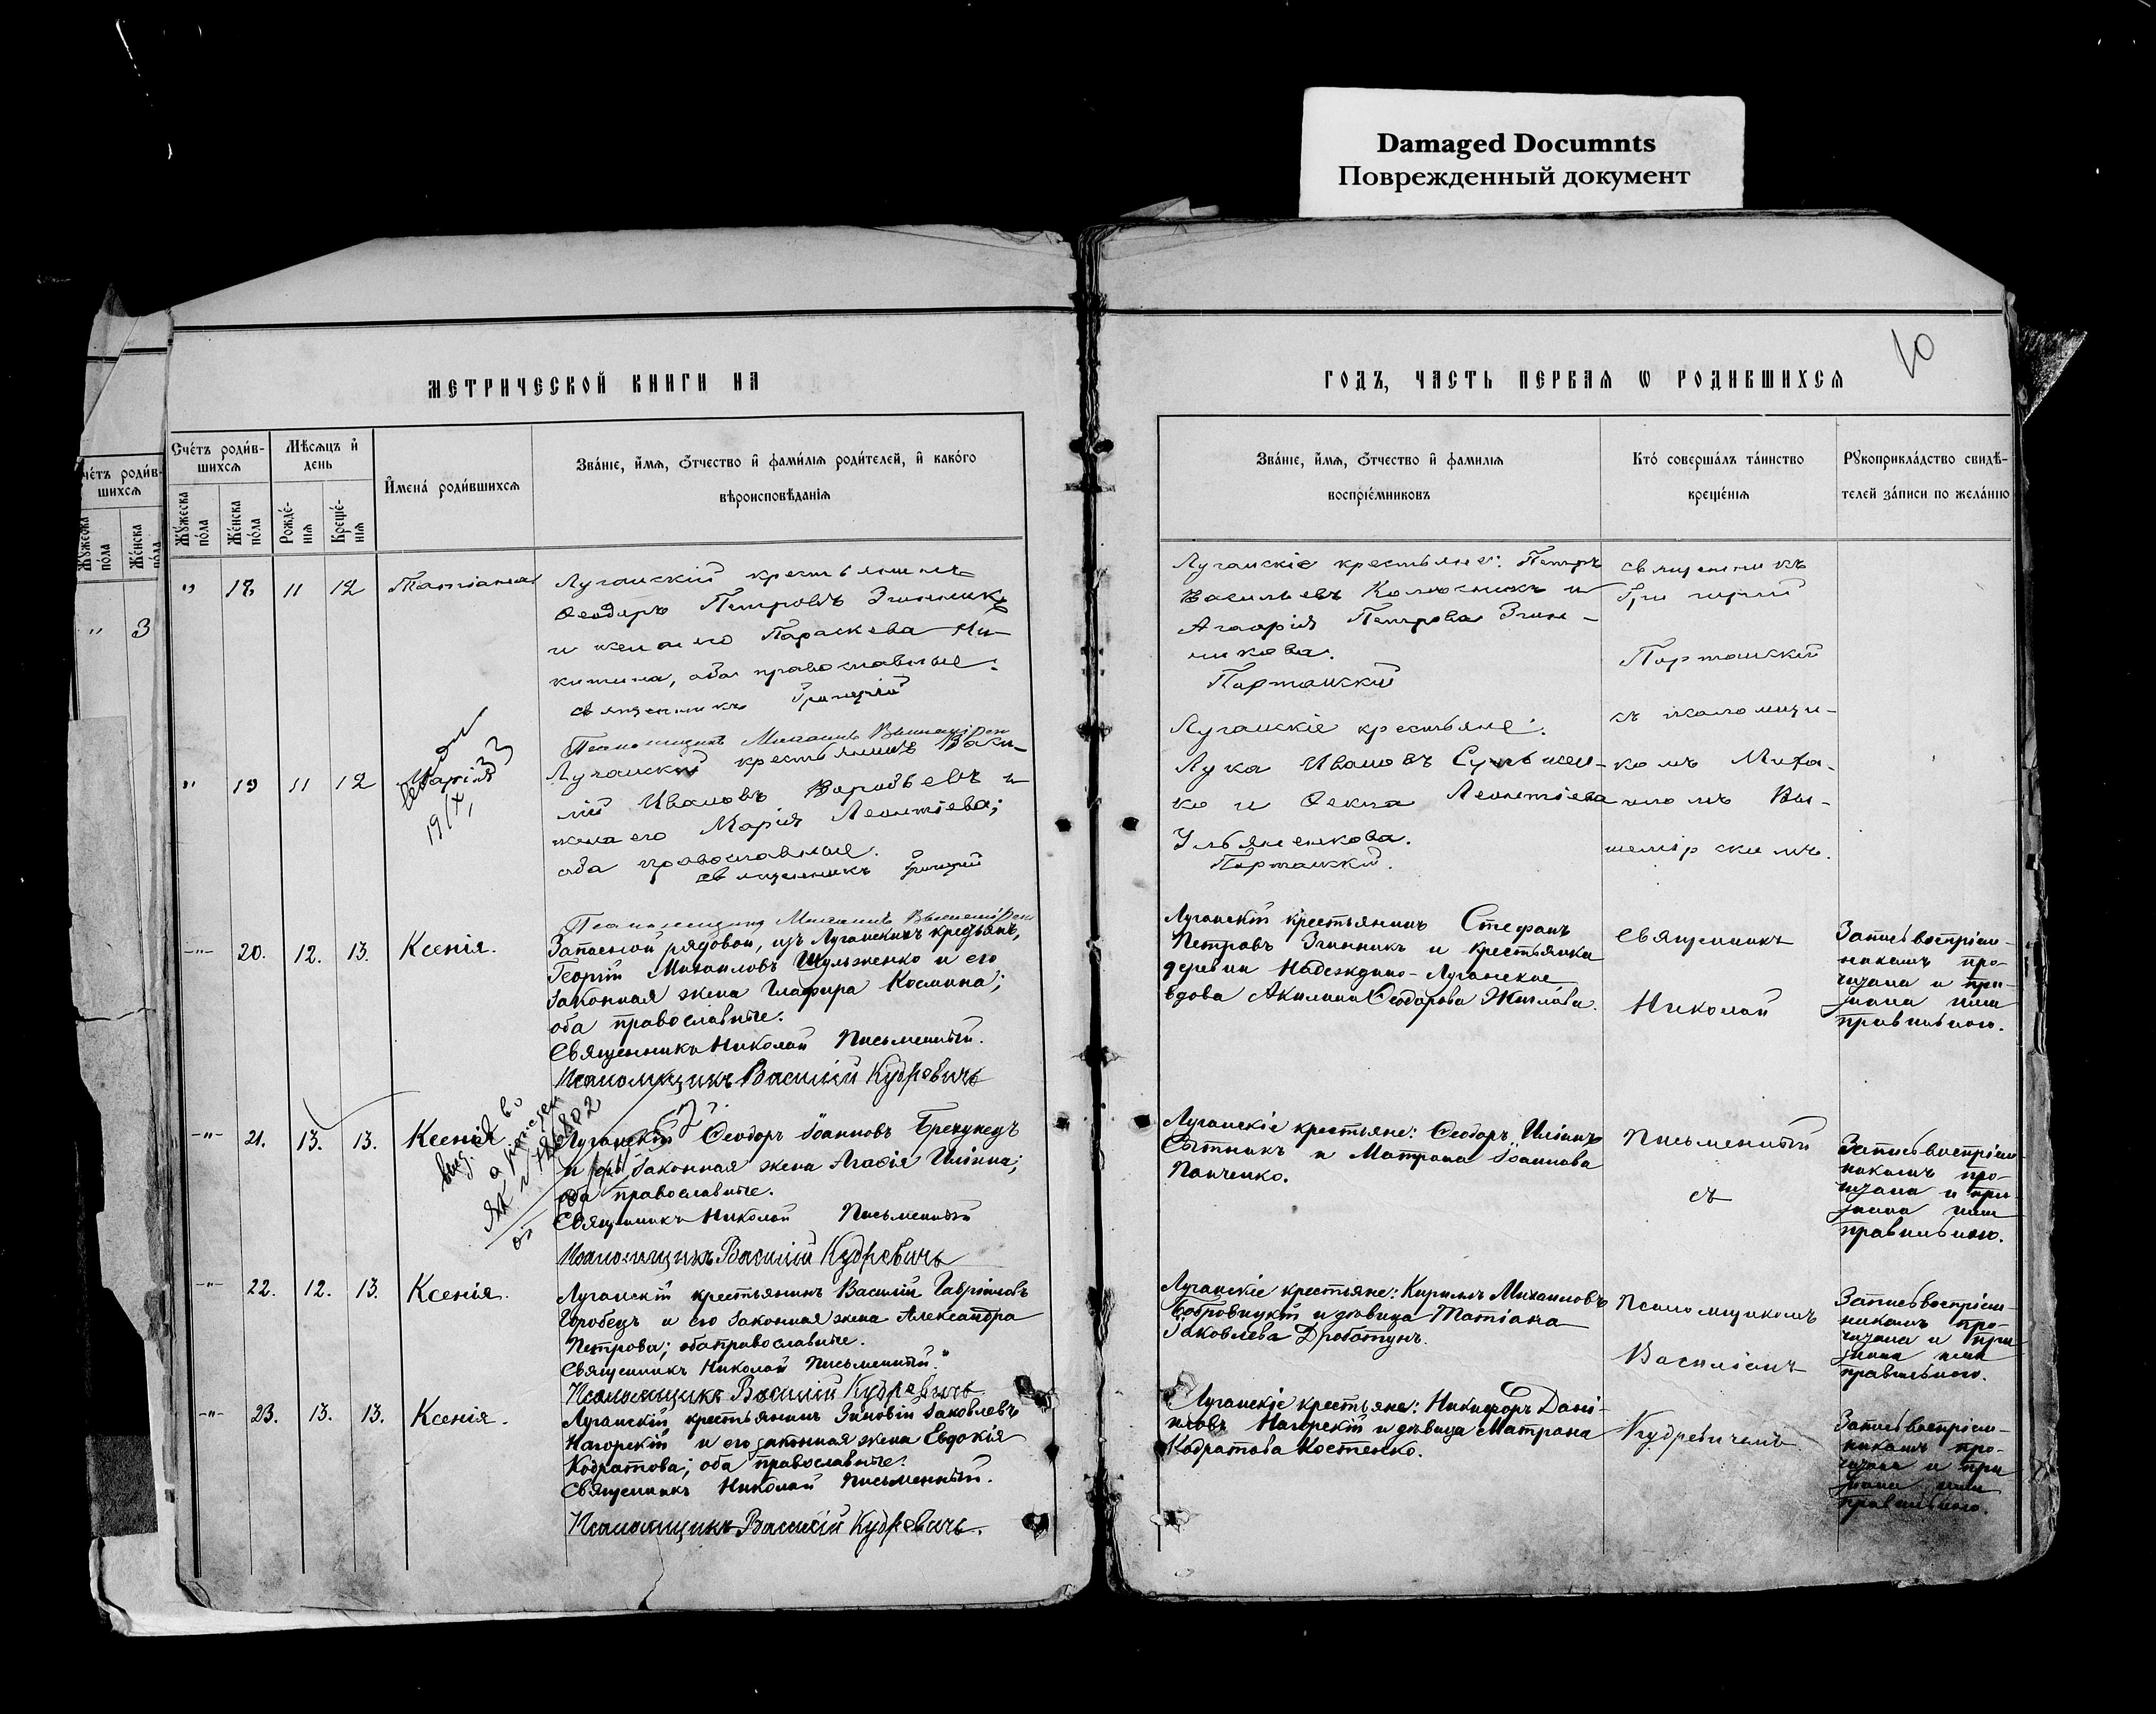 Damaged Documnts
Поврежденный документ
10
МЕТРИЧЕСКОЙ КНИГИ НА
ГОДЪ, ЧАСТЬ ПЕРВАЯ Ѡ РОДИВШИХСЯ
Счетъ родив-
шихся
Мужеска пола
Женска пола
Мѣсяцъ и день
Рожде-
нія
Креще-
нія
Имена родившихся
Званіе, имя, отчество и фамилія родителей, и какого
вѣроисповѣданія
Званіе, имя, отчество и фамилія
воспріемниковъ
Кто совершалъ таинство
крещенія
Рукоприкладство свидѣ-
телей записи по желанію
" 3
" 18 11 12 Татіана
Луганскій крестьянинъ
Ѳеодоръ Петровъ Згинникъ
и жена его Параскева Ни-
китина, оба православные.
священникъ Григорій
Псаломщикъ Михаилъ
Луганскіе крестьяне: Петръ
Васильевъ Колесникъ и
Агафія Петрова Згин-
никова.
Портанскій
" 19 11 12 Марія
19/X
Луганскій крестьянинъ
Ивановъ Воробьевъ и
жена его Марія Леонтіева;
оба православные.
священникъ Григорій
Псаломщикъ Михаилъ
Луганскіе крестьяне:
Лука Ивановъ
ко и Ѳекла Леонтіева
Ульяненкова.
Портанскій.
священникъ
Григорій
Портанскій
съ псаломщи-
комъ Миха-
иломъ
-"- 20. 12. 13. Ксенія.
Запасной рядовой, изъ Луганскихъ крестьянъ,
Георгій Михаиловъ Шульженко и его
законная жена Глафира Космина;
оба православные.
Священникъ Николай Письменный.
Псаломщикъ Василій Кудревичъ
Луганскій крестьянинъ Стефанъ
Петровъ Згинникъ и крестьянка
деревни Надеждино-Луганское
вдова Акилина Ѳеодорова Жилова.
Запись воспріем-
никамъ про-
читана и при-
знана ими
правильною.
-"- 21. 13. 13. Ксенія
Луганскій Ѳеодоръ Іоанновъ
и его законная жена Агафія Иліина;
оба православные.
Священникъ Николай Письменный
Псаломщикъ Василій Кудревичъ
Луганскіе крестьяне: Ѳеодоръ Иліинъ
Сытникъ и Матрона Іоаннова
Панченко.
Запись воспріем-
никамъ про-
читана и при-
знана ими
правильною.
-"- 22. 12. 13. Ксенія.
Луганскій крестьянинъ Василій Гавріиловъ
Горобецъ и его законная жена Александра
Петрова; оба православные.
Священникъ Николай Письменный.
Псаломщикъ Василій Кудревичъ
Луганскіе крестьяне: Кириллъ Михаиловъ
Бобровицкій и дѣвица Татіана
Іаковлева Дроботунъ.
Запись воспріем-
никамъ про-
читана и при-
знана ими
правильною.
-"- 23. 13. 13. Ксенія.
Луганскій крестьянинъ Зиновій Іаковлевъ
Нагорскій и его законная жена Евдокія
Кодратова; оба православные.
Священникъ Николай Письменный.
Псаломщикъ Василій Кудревичъ.
Луганскіе крестьяне: Никифоръ Дані-
иловъ Нагорскій и дѣвица Матрона
Кодратова Костенко.
Запись воспріем-
никамъ про-
читана и при-
знана ими
правильною.
Священникъ
Николай
Письменный
съ
Псаломщикомъ
Василіемъ
Кудревичемъ